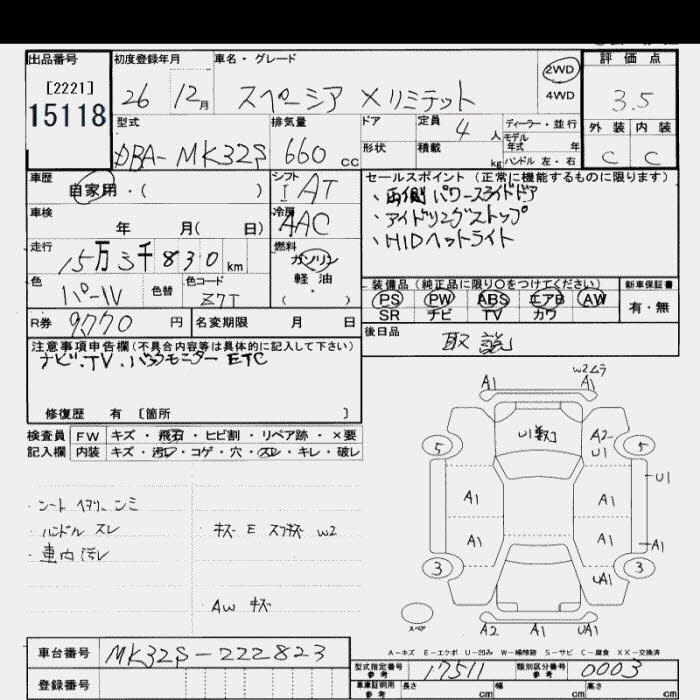 出品番号 初度登録年月 車名・グレード 2WD 評価点
[2221]
15118 26 12月 スペーシア Xリミテット 4WD 3.5
型式 排気量 ドア 定員 4人 ディーラー・並行 外装 内装
DBA-MK32S 660cc 形状 積載 kg モデル年式 年 ハンドル 左・右 C C
車歴 自家用・( ) シフト IAT セールスポイント(正常に機能するものに限ります)
、両側パワースライドドア
車検 年 月( 日) 冷房 AAC 、アイドリングストップ
・HIDヘットライト
走行 15万3千830km 燃料 ガソリン
軽油
( ・ )
色 パール 色替 色コード Z7T
装備品(純正品に限り○をつけてください) 新車保証書
PS PW ABS エアB AW 有・無
SR ナビ TV カワ
R券 9770円 名変期限 月 日 後日品 取説
注意事項申告欄(不具合内容等は具体的に記入して下さい)
ナビ.TV.バックモニター ETC
修復歴 有 [箇所 ]
検査員 FW キズ・飛石・ヒビ割・リペア跡・×要
記入欄 内装 キズ・汚レ・コゲ・穴・スレ・キレ・破レ
・ハンドル スレ
・車内汚レ
AW キズ
A1 A1 W2ムラ
5 U1 A2 U1 5
U1
A1 A1
A1 A1 A1
3 UA1 3
スペア A2 A1 UA1
A-キズ E-エクボ U-凹み W-補修跡 S-サビ C-腐食 XX-交換済
車台番号 MK32S-222823
登録番号
型式指定番号 参考 17511 類別区分番号 参考 0003
車庫証明用 参考 長さ cm 幅 cm 高さ cm